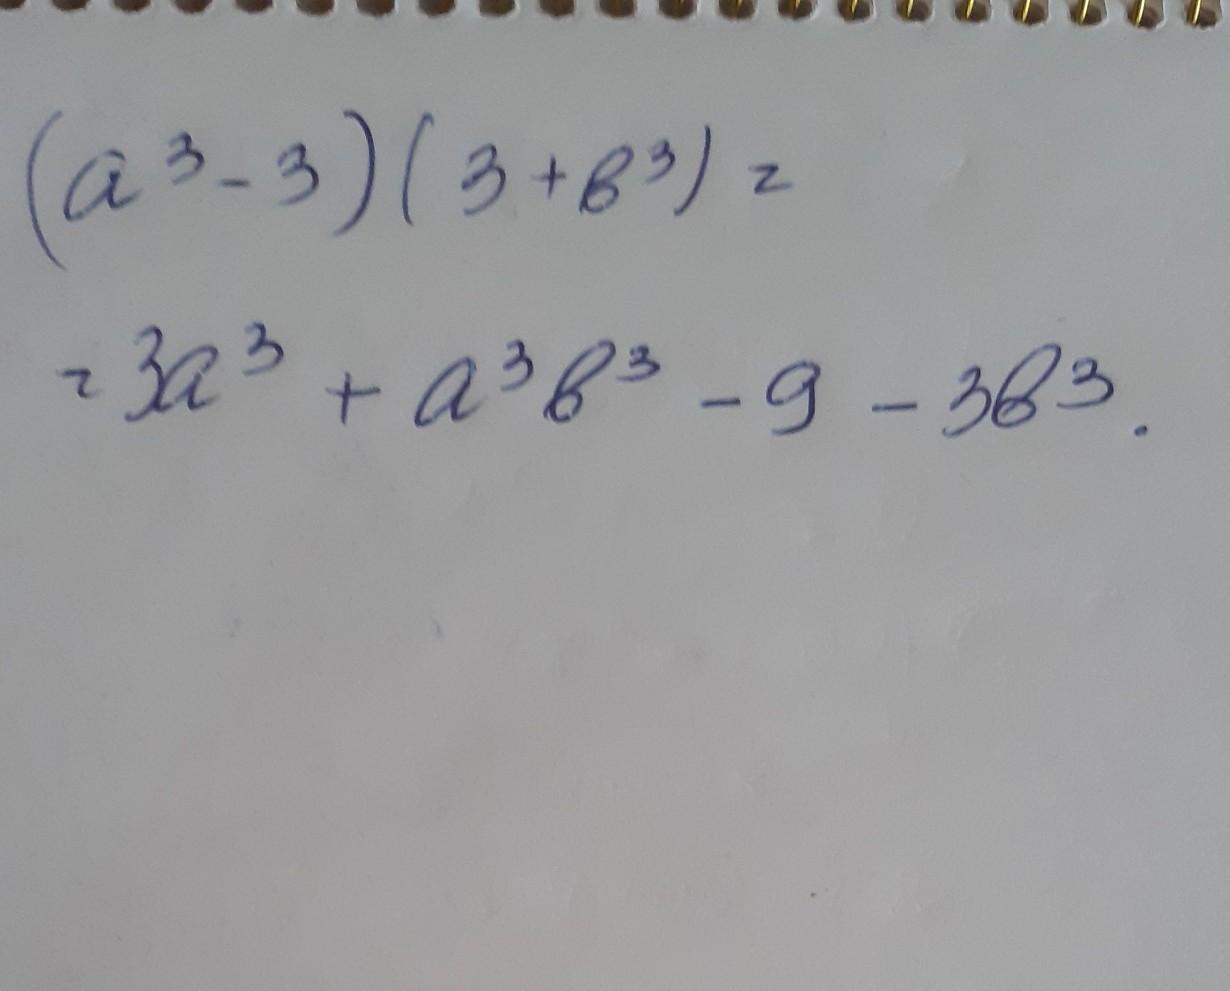 (a³ - 3)(3 + b³) =
= 3a³ + a³b³ - 9 - 3b³.